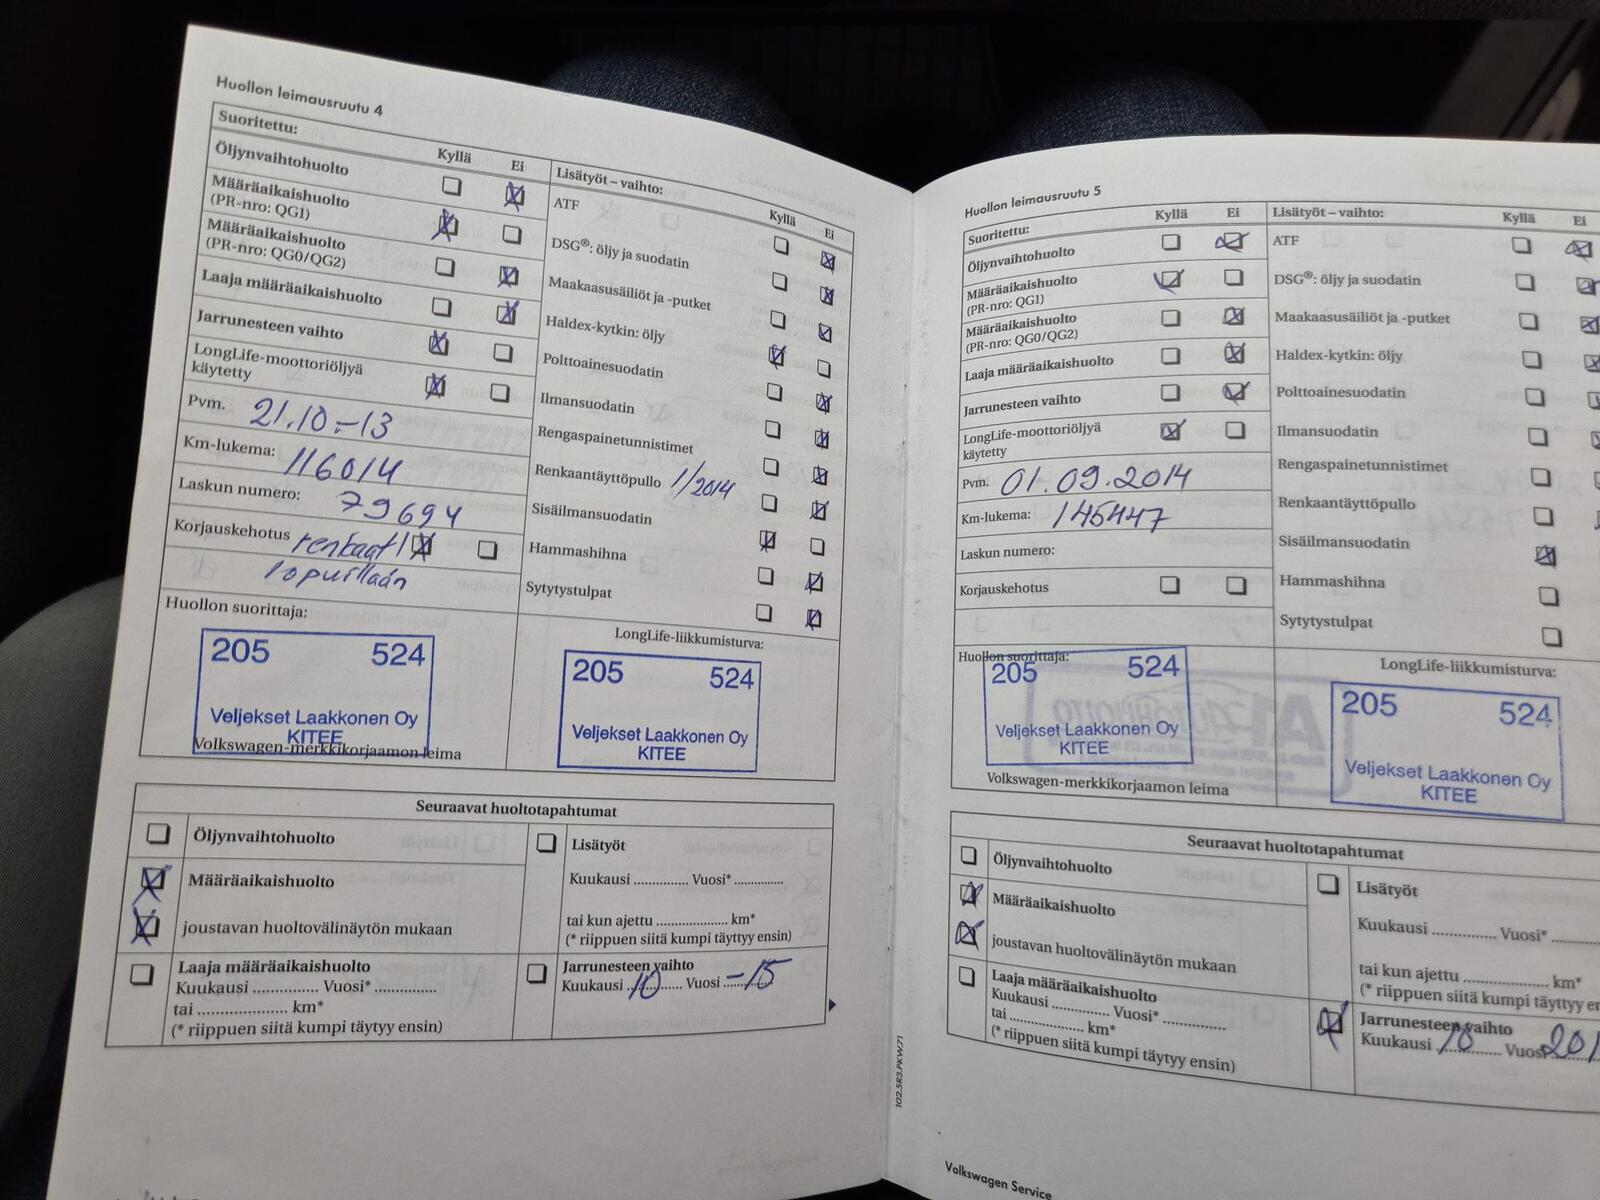 Huollon leimausruutu 4
Suoritettu:
Kyllä Ei
Öljynvaihtohuolto
Määräaikaishuolto
(PR-nro: QG1)
Määräaikaishuolto
(PR-nro: QG0/QG2)
Laaja määräaikaishuolto
Jarrunesteen vaihto
LongLife-moottoriöljyä
käytetty
Pvm. 21.10.-13
Km-lukema: 116014
Laskun numero: 79694
Korjauskehotus renkaat
lopuillaan
Huollon suorittaja:
205 524
Veljekset Laakkonen Oy
KITEE
Volkswagen-merkkikorjaamon leima
Lisätyöt – vaihto:
Kyllä Ei
ATF
DSG®: öljy ja suodatin
Maakaasusäiliöt ja -putket
Haldex-kytkin: öljy
Polttoainesuodatin
Ilmansuodatin
Rengaspainetunnistimet
Renkaantäyttöpullo 1/2014
Sisäilmansuodatin
Hammashihna
Sytytystulpat
LongLife-liikkumisturva:
205 524
Veljekset Laakkonen Oy
KITEE
Seuraavat huoltotapahtumat
Öljynvaihtohuolto
Määräaikaishuolto
joustavan huoltovälinäytön mukaan
Laaja määräaikaishuolto
Kuukausi .............. Vuosi* ..............
tai .................... km*
(* riippuen siitä kumpi täytyy ensin)
Lisätyöt
Kuukausi .............. Vuosi* ..............
tai kun ajettu .................... km*
(* riippuen siitä kumpi täyttyy ensin)
Jarrunesteen vaihto
Kuukausi 10 Vuosi -15
Huollon leimausruutu 5
Suoritettu:
Kyllä Ei
Öljynvaihtohuolto
Määräaikaishuolto
(PR-nro: QG1)
Määräaikaishuolto
(PR-nro: QG0/QG2)
Laaja määräaikaishuolto
Jarrunesteen vaihto
LongLife-moottoriöljyä
käytetty
Pvm. 01.09.2014
Km-lukema: 145447
Laskun numero:
Korjauskehotus
Huollon suorittaja:
205 524
Veljekset Laakkonen Oy
KITEE
Volkswagen-merkkikorjaamon leima
Lisätyöt – vaihto:
Kyllä Ei
ATF
DSG®: öljy ja suodatin
Maakaasusäiliöt ja -putket
Haldex-kytkin: öljy
Polttoainesuodatin
Ilmansuodatin
Rengaspainetunnistimet
Renkaantäyttöpullo
Sisäilmansuodatin
Hammashihna
Sytytystulpat
LongLife-liikkumisturva:
205 524
Veljekset Laakkonen Oy
KITEE
Seuraavat huoltotapahtumat
Öljynvaihtohuolto
Määräaikaishuolto
joustavan huoltovälinäytön mukaan
Laaja määräaikaishuolto
Kuukausi .............. Vuosi* ..............
tai .................... km*
(* riippuen siitä kumpi täytyy ensin)
Lisätyöt
Kuukausi .............. Vuosi* ..........
tai kun ajettu ....................
(* riippuen siitä kumpi täyttyy
Jarrunesteen vaihto
Kuukausi 10 Vuosi 201
102.5R3.PKW.71
Volkswagen Service